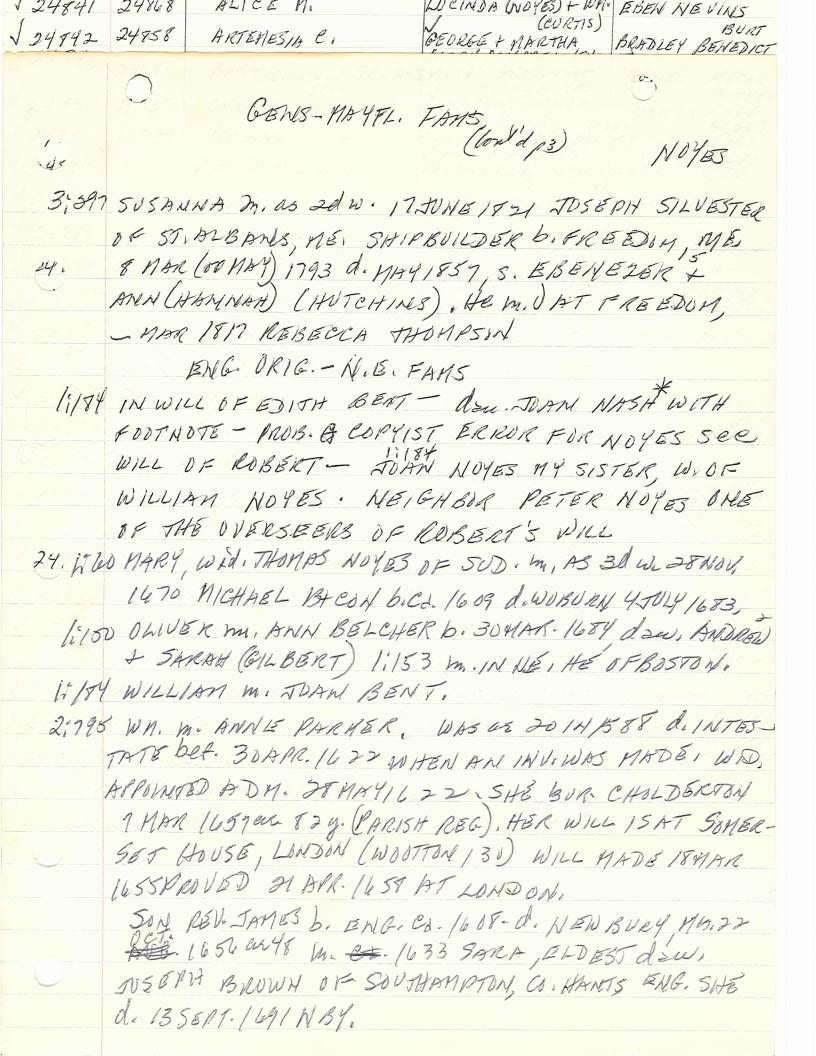 √ 24841 24868 ALICE M. LUCINDA (NOYES) + WM. EBEN NEVINS
√ (CURTIS) BURT
√ 24842 24858 ARTEMESIA C. GEORGE + MARTHA BRADLEY BENEDICT
GENS-MAYFL. FAMS
(Cont'd p3)
NOYES
3:397 SUSANNA m. as 2d w. 17 JUNE 1821 JOSEPH SILVESTER
OF ST. ALBANS, ME. SHIPBUILDER b. FREEDOM, ME.
24. 8 MAR (or MAY) 1793 d. MAY 1857, s. EBENEZER +
ANN (HANNAH) (HUTCHINS). He m. 1) AT FREEDOM,
— MAR 1817 REBECCA THOMPSON
ENG. ORIG. - N.E. FAMS
1:184 IN WILL OF EDITH BENT — dau. JOAN NASH* WITH
FOOTNOTE - PROB. COPYIST ERROR FOR NOYES see
WILL OF ROBERT — 1:184 JOAN NOYES MY SISTER, W. OF
WILLIAM NOYES. NEIGHBOR PETER NOYES ONE
OF THE OVERSEERS OF ROBERT'S WILL
24. 1:60 MARY, wid. THOMAS NOYES OF SUD. m. AS 3d w. 28 NOV.
1670 MICHAEL BACON b. Ca. 1609 d. WOBURN 4 JULY 1683,
1:150 OLIVER m. ANN BELCHER b. 30 MAR. 1684, dau. ANDREW 2
+ SARAH (GILBERT) 1:153 m. IN NE. HE OF BOSTON.
1:184 WILLIAM m. JOAN BENT.
2:795 WM. m. ANNE PARKER. WAS ae 20 IN 1588 d. INTES-
TATE bef. 30 APR. 1622 WHEN AN INV. WAS MADE. WID.
APPOINTED ADM. 28 MAY 1622. SHE BUR. CHOLDERTON
7 MAR 1657 ae 82 y. (PARISH REG). HER WILL IS AT SOMER-
SET HOUSE, LONDON (WOOTTON 130) WILL MADE 18 MAR
1655 PROVED 21 APR. 1658 AT LONDON.
SON REV. JAMES b. ENG. Ca. 1608 - d. NEWBURY, MA. 22
OCT. 1656 ae 48 m. 1633 SARA, ELDEST dau.
JOSEPH BROWN OF SOUTHAMPTON, CO. HANTS ENG. SHE
d. 13 SEPT. 1691 NBY.